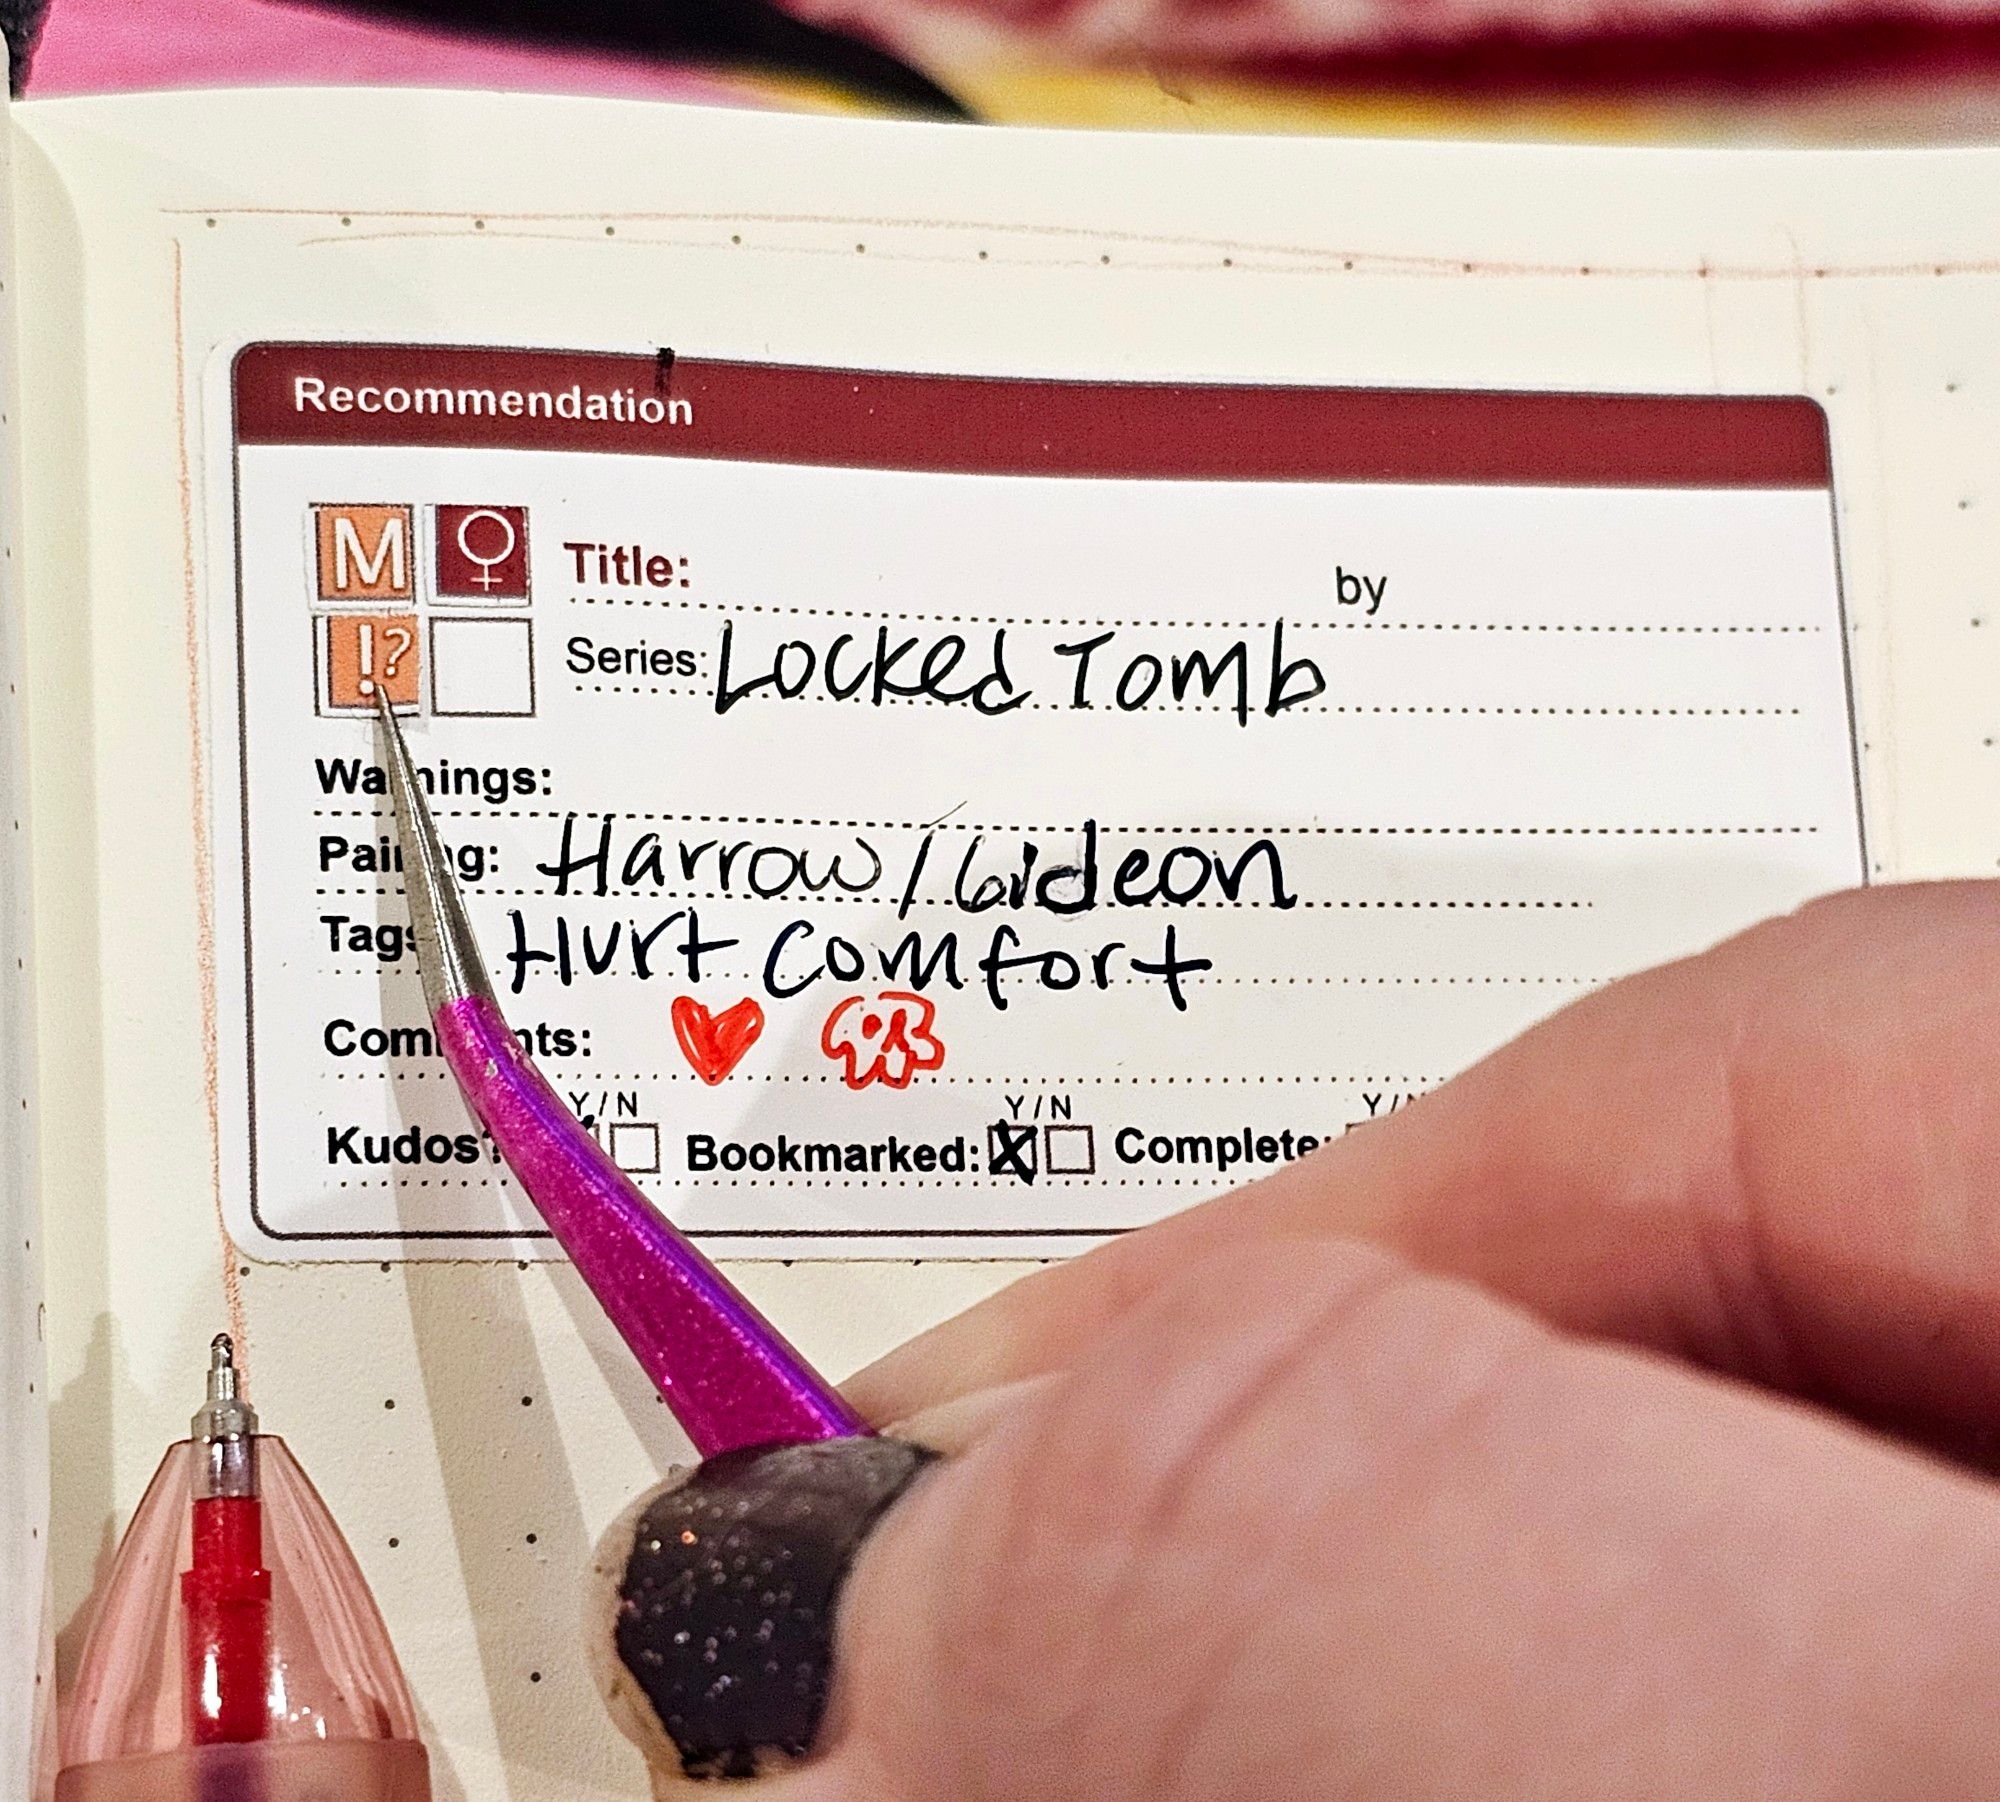 Recommendation
M
!?
Title: by
Series: Locked Tomb
Warnings:
Pairing: Harrow/Gideon
Tags Hurt Comfort
Comments:
Y/N Y/N Y/N
Kudos? Bookmarked: X Complete: